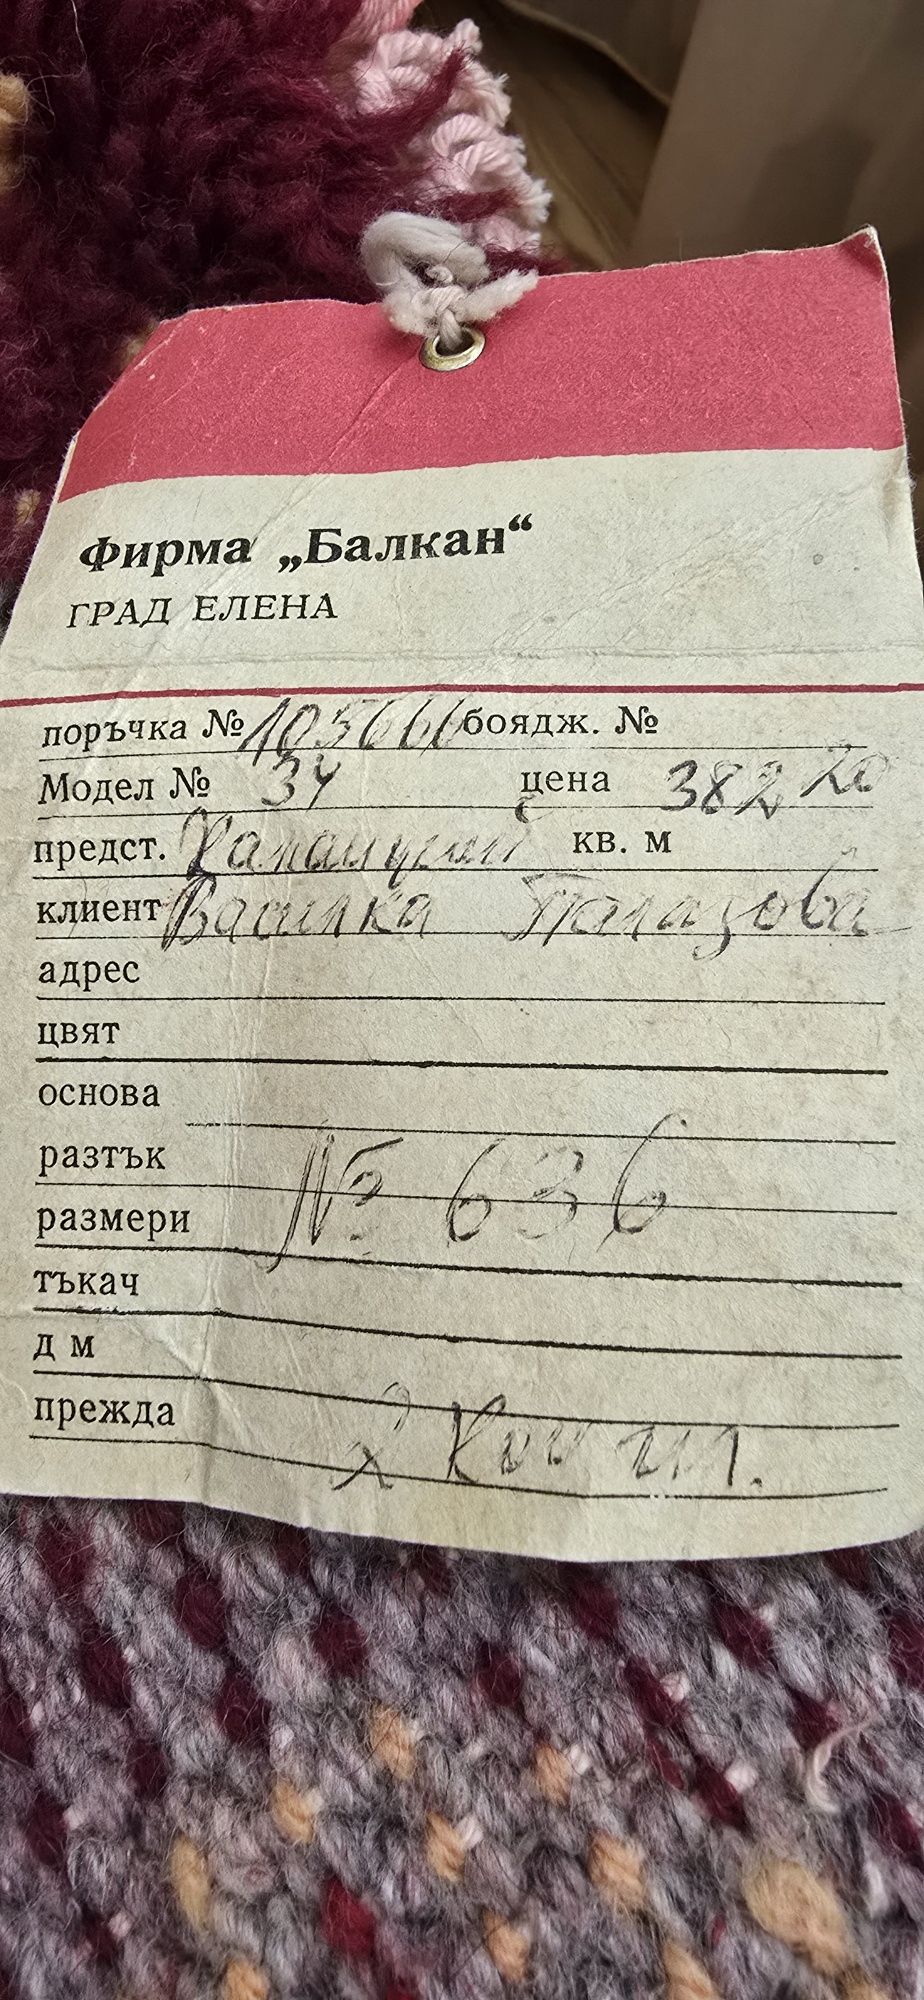 Фирма „Балкан“
ГРАД ЕЛЕНА
поръчка № боядж. №
Модел № 34 цена 382 20
предст. кв. м
клиент Василка
адрес
цвят
основа
разтък
№ 636
размери
тъкач
д м
прежда
2